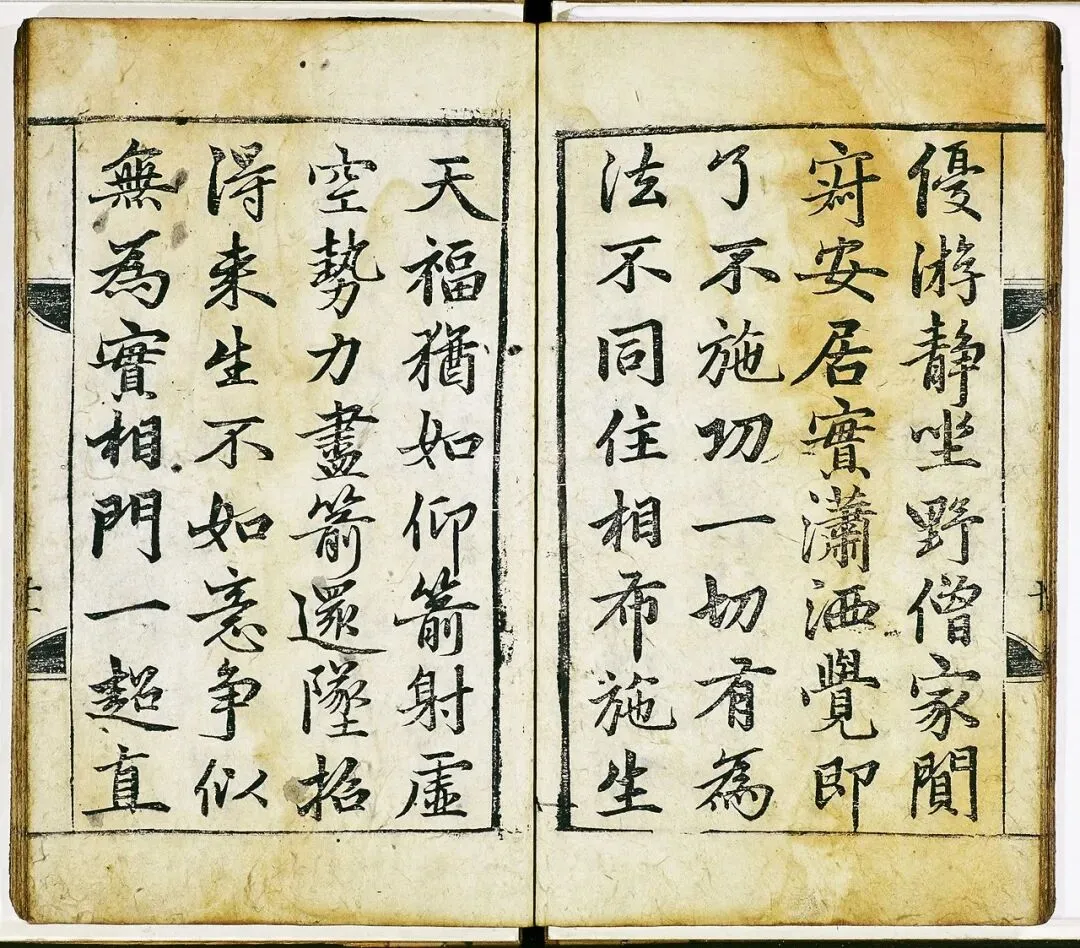 優游靜坐野僧家閴
寂安居實瀟洒覺即
了不施功一切有為
法不同住相布施生
天福猶如仰箭射虛
空勢力盡箭還墜招
得来生不如意爭似
無為實相門一超直